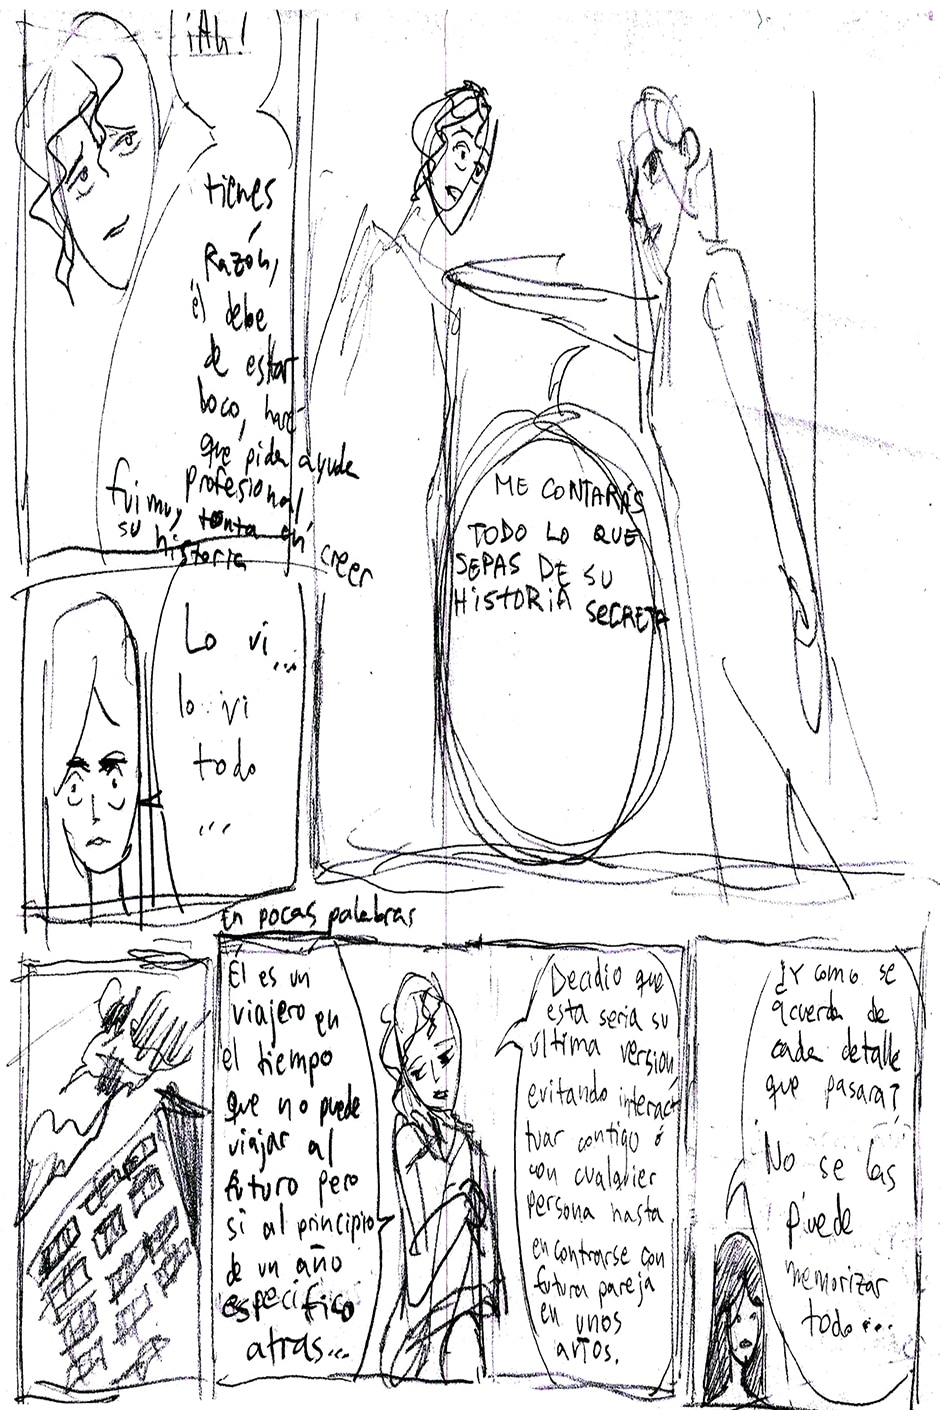 ¡Ah!
tienes
Razón,
él debe
de estar
loco, haré
que pida ayuda
profesional,
fui muy tonta en creer
su historia
ME CONTARÁS
TODO LO QUE
SEPAS DE SU
HISTORIA SECRETA
Lo vi...
lo vi
todo
...
En pocas palabras
El es un
viajero en
el tiempo
que no puede
viajar al
futuro pero
si al principio
de un año
especifico
atras...
Decidio que
esta seria su
última version,
evitando interac
tuar contigo ó
con cualquier
persona hasta
encontrarse con
futura pareja
en unos
años.
¿Y como se
acuerda de
cada detalle
que pasara?
No se las
puede
memorizar
todo...